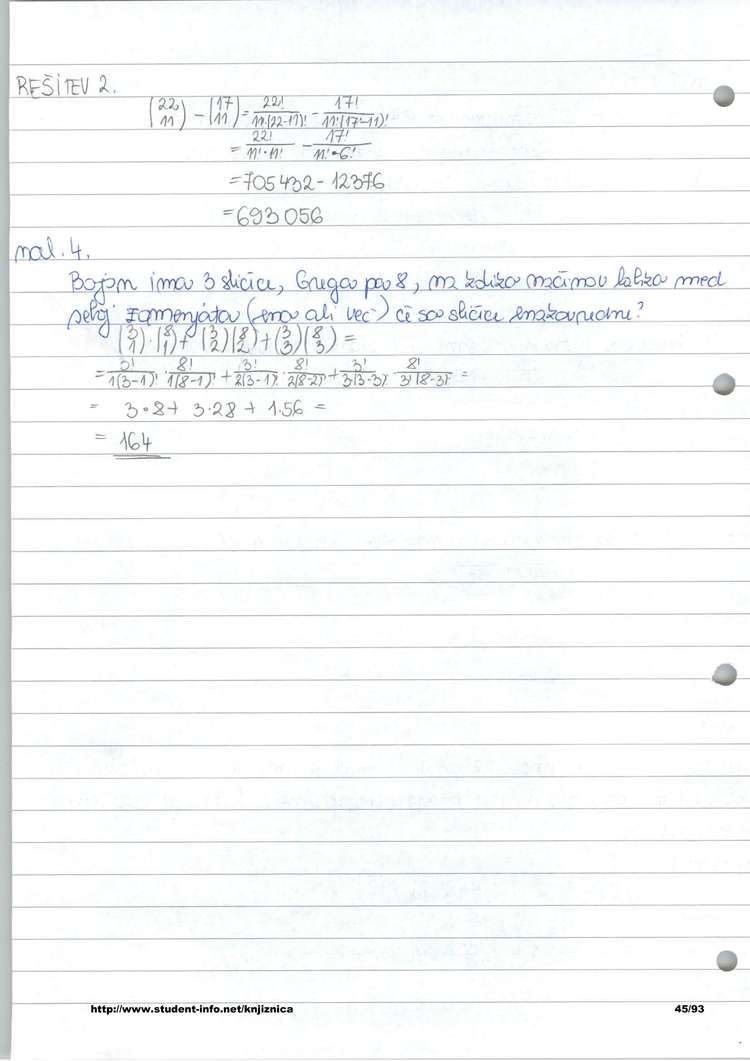 REŠITEV 2.
(22 11) - (17 11) = 22!/11!(22-11)! - 17!/11!(17-11)!
= 22!/11!·11! - 17!/11!·6!
= 705 432 - 12376
= 693 056
nal. 4.
Bojan ima 3 sličice, Grega pa 8, na koliko načinov lahko med
seboj zamenjata (eno ali več) če so sličice enakovredne?
(3 1)·(8 1) + (3 2)(8 2) + (3 3)(8 3) =
= 3!/1(3-1)! · 8!/1(8-1)! + 3!/2(3-1)! · 8!/2(8-2)! + 3!/3(3-3)! · 8!/3!(8-3)! =
= 3·8 + 3·28 + 1·56 =
= 164
http://www.student-info.net/knjiznica 45/93